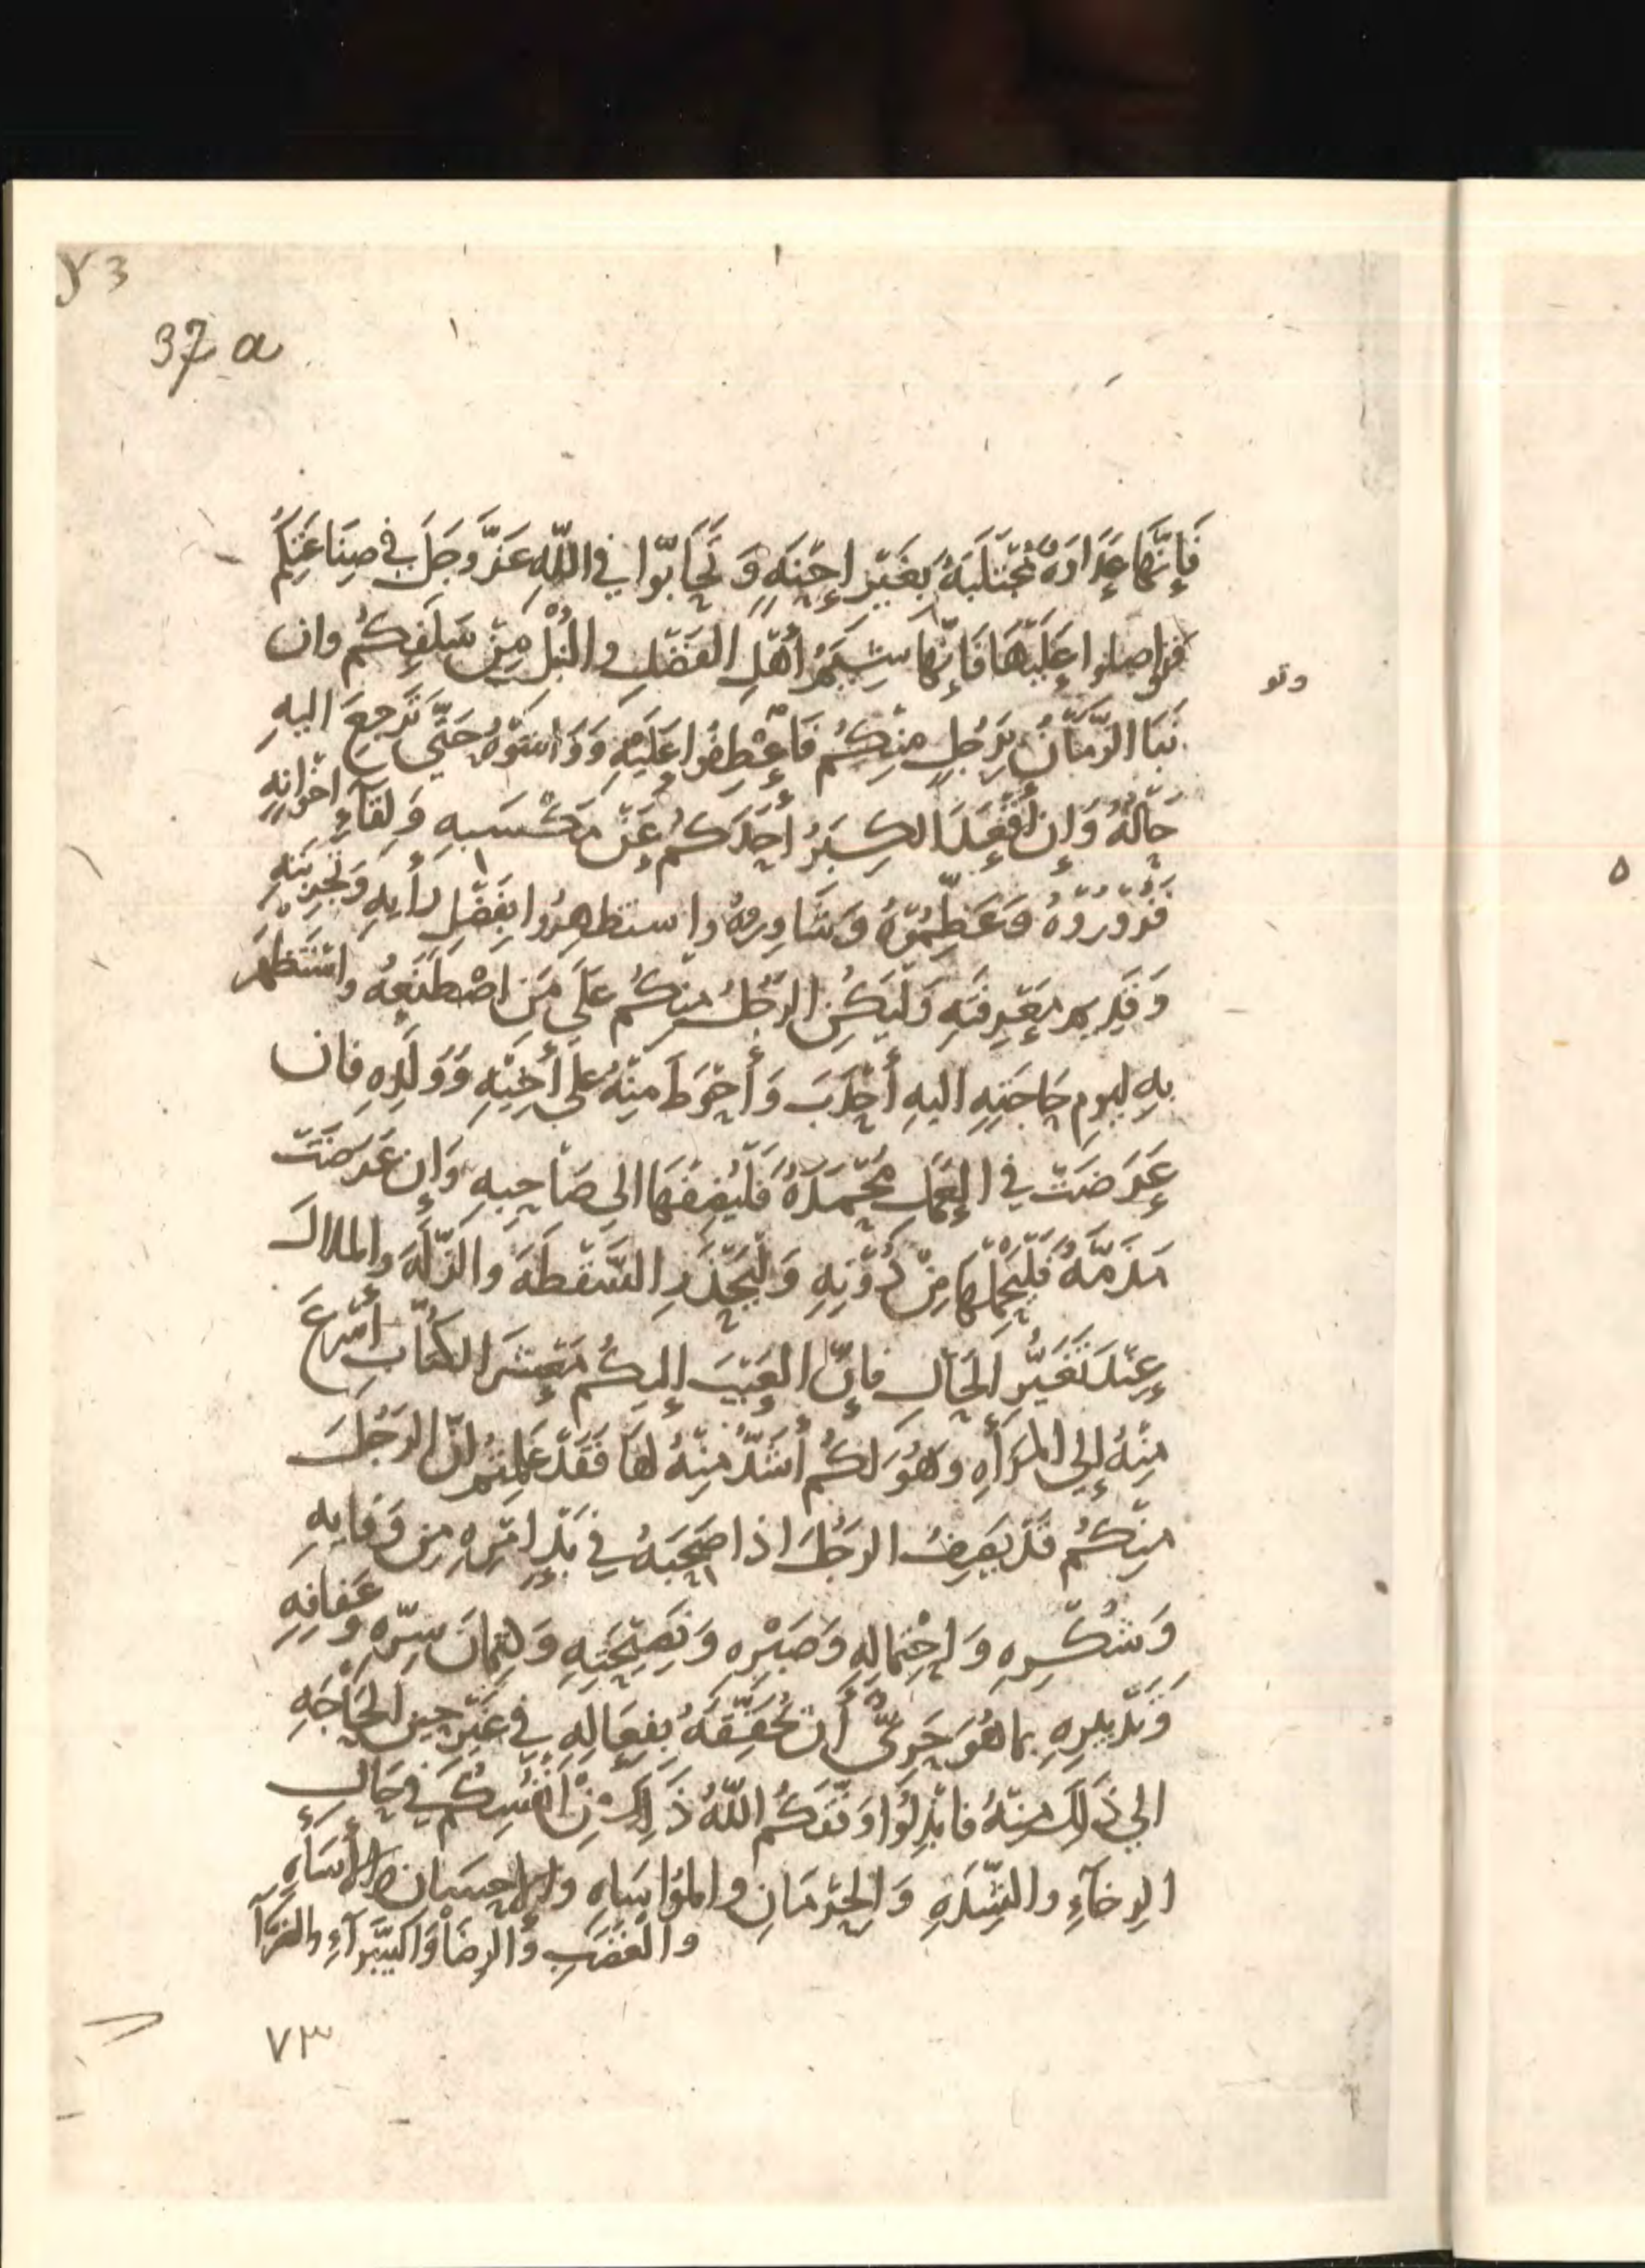 γ3
37 a
فَإِنَّهَا عَدَاوَةٌ مُجْتَلَبَةٌ بِغَيْرِ إِحْنَةٍ وَتَحَابُّوا فِي اللّٰهِ عَزَّ وَجَلَّ فِي صِنَاعَتِكُمْ
فتواصلوا عَلَيْهَا فَإِنَّهَا شِيَمُ أَهْلِ الفَضْلِ والنُبْل مِنْ سَلَفِكُم وان
وتو
نَبَا الزَّمَانُ بِرَجُلٍ مِنْكُم فَاعْطِفُوا عَلَيْهِ وَوَاسُوْهُ حَتَّى تَرجِعَ اليهِ
حَالُهُ وَإِن أَقْعَدَ الكِبَرُ أَحَدَكُم عَنْ مَكْسَبِهِ وَلِقَاءِ اخوَانِهِ
فَزُوْرُوْهُ وَعَظِّمُوْهُ وَشَاوِرُوهُ واستظهِرُوا بِفَضْلِ رَأيِهِ وَتَجْرِبَتِهِ
وَقَدِيم مَعْرِفَتِهِ وَليَكُنِ الرَّجُلُ مِنكُم عَلَى مَنِ اصْطَنَعَهُ واسْتَظهَرَ
بِهِ ليومِ حَاجَتِهِ اليهِ أَحْدَبَ وَأَحْوَطَ مِنْهُ عَلَى أَخِيْهِ وَوَلَدِهِ فان
عَرَضَتْ فِي العَمَلِ مَحْمَدَةٌ فَلْيُضِفْهَا الى صَاحِبِهِ وَإِن عَرَضَتْ
مَذَمَّةٌ فَلْيَحْمِلْهَا مِنْ دُوْنِهِ وَلْيَحْذَرِ السَّقْطَةَ والزَّلَّةَ والملالَ
عِنْدَ تَغَيُّرِ الحَالِ فَإِنَّ العَيْبَ إِليكُم مَعْشَرَ الكُتَّابِ أَسْرَعُ
مِنْهُ إِلى المَرْأَةِ وَهُوَ لَكُم أَشَدُّ مِنْهُ لَهَا فَقَدْ عَلِمْتُم انّ الرَجُلَ
مِنْكُم قَدْ يَصِفُ الرَجُلَ اذا صَحِبَهُ فِي بَدْءِ امْرِهِ مِن وَفَايِهِ
وَشُكْرِهِ وَاحْتِمَالِهِ وَصَبْرِهِ وَنَصِيْحَتِهِ وَكِتْمَانِ سِرِّهِ وعَفافِهِ
وَتَدْبِيرِهِ بما هُوَ حَرِىٌّ أَن تُحَقِّقَهُ بِفِعَالِهِ فِي غَيْرِ حِين الحَاجَةِ
الى ذَلِكَ مِنْهُ فَابْذِلُوا وَفَّقَكُم اللّٰهُ ذَلِكَ مِنْ أَنْفُسِكُم فِي حَالِ
الرخَآءِ والشِّدَةِ وَالحِرْمَانِ والمُوَاسَاهِ والإحسَانِ والإسَآءَةِ
والغَضَبِ والرِضَا وَالسَّرآءِ والضَرّآ
٧٣